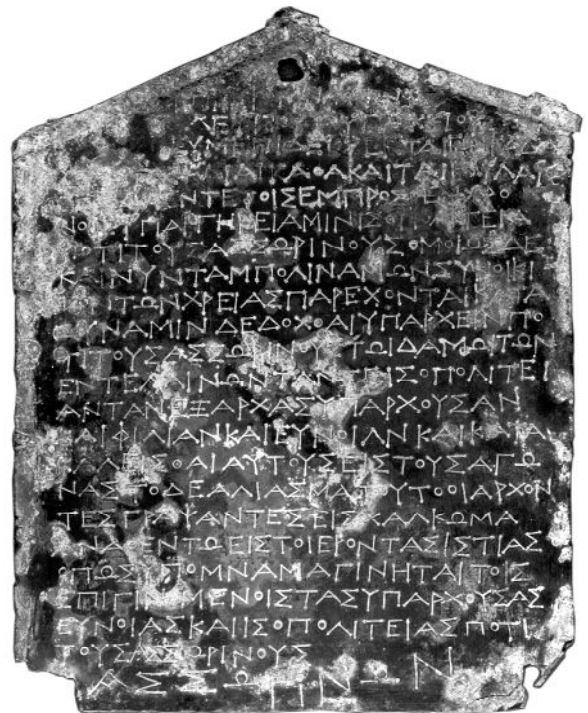 ΛΙΑΙΚΑΘΑΚΑΙΤΑΙΒΟΥΛΑΙ
ΝΤΕΤΟΙΣΕΜΠΡΟΣΘΕΧΡΟ
ΝΟΙΣΥΠΑΡΓΗΚΕΙΑΜΙΝΙΣΟΠΟΛΙΤΕΙΑ
ΠΟΤΙΤΟΥΣΑΣΣΩΡΙΝΟΥΣΟΜΟΙΩΣΔΕ
ΚΑΙΝΥΝΤΑΜΠΟΛΙΝΑΜΩΝΣΥΝΟΙΚΙ
ΖΟΝΤΩΝΧΡΕΙΑΣΠΑΡΕΧΟΝΤΑΙΚΑΤΑ
ΔΥΝΑΜΙΝΔΕΔΟΧΘΑΙΥΠΑΡΧΕΙΝΠΟ
ΤΙΤΟΥΣΑΣΣΩΡΙΝΟΥΣΤΩΙΔΑΜΩΙΤΩΝ
ΕΝΤΕΛΛΙΝΩΝΤΑΝΙΣΟΠΟΛΙΤΕΙ
ΑΝΤΑΝΕΞΑΡΧΑΣΥΠΑΡΧΟΥΣΑΝ
ΚΑΙΦΙΛΙΑΝΚΑΙΕΥΝΟΙΑΝΚΑΙΚΑΤΑ
ΚΑΛΕΙΣΘΑΙΑΥΤΟΥΣΕΙΣΤΟΥΣΑΓΩ
ΝΑΣΤΟΔΕΑΛΙΑΣΜΑΤΟΥΤΟΟΙΑΡΧΟΝ
ΤΕΣΓΡΑΨΑΝΤΕΣΕΙΣΧΑΛΚΩΜΑ
ΑΝΑΘΕΝΤΩΕΙΣΤΟΙΕΡΟΝΤΑΣΙΣΤΙΑΣ
ΟΠΩΣΥΠΟΜΝΑΜΑΓΙΝΗΤΑΙΤΟΙΣ
ΕΠΙΓΙΝΟΜΕΝΟΙΣΤΑΣΥΠΑΡΧΟΥΣΑΣ
ΕΥΝΟΙΑΣΚΑΙΙΣΟΠΟΛΙΤΕΙΑΣΠΟΤΙ
ΤΟΥΣΑΣΣΩΡΙΝΟΥΣ
ΑΣΣΩΡΙΝΩΝ